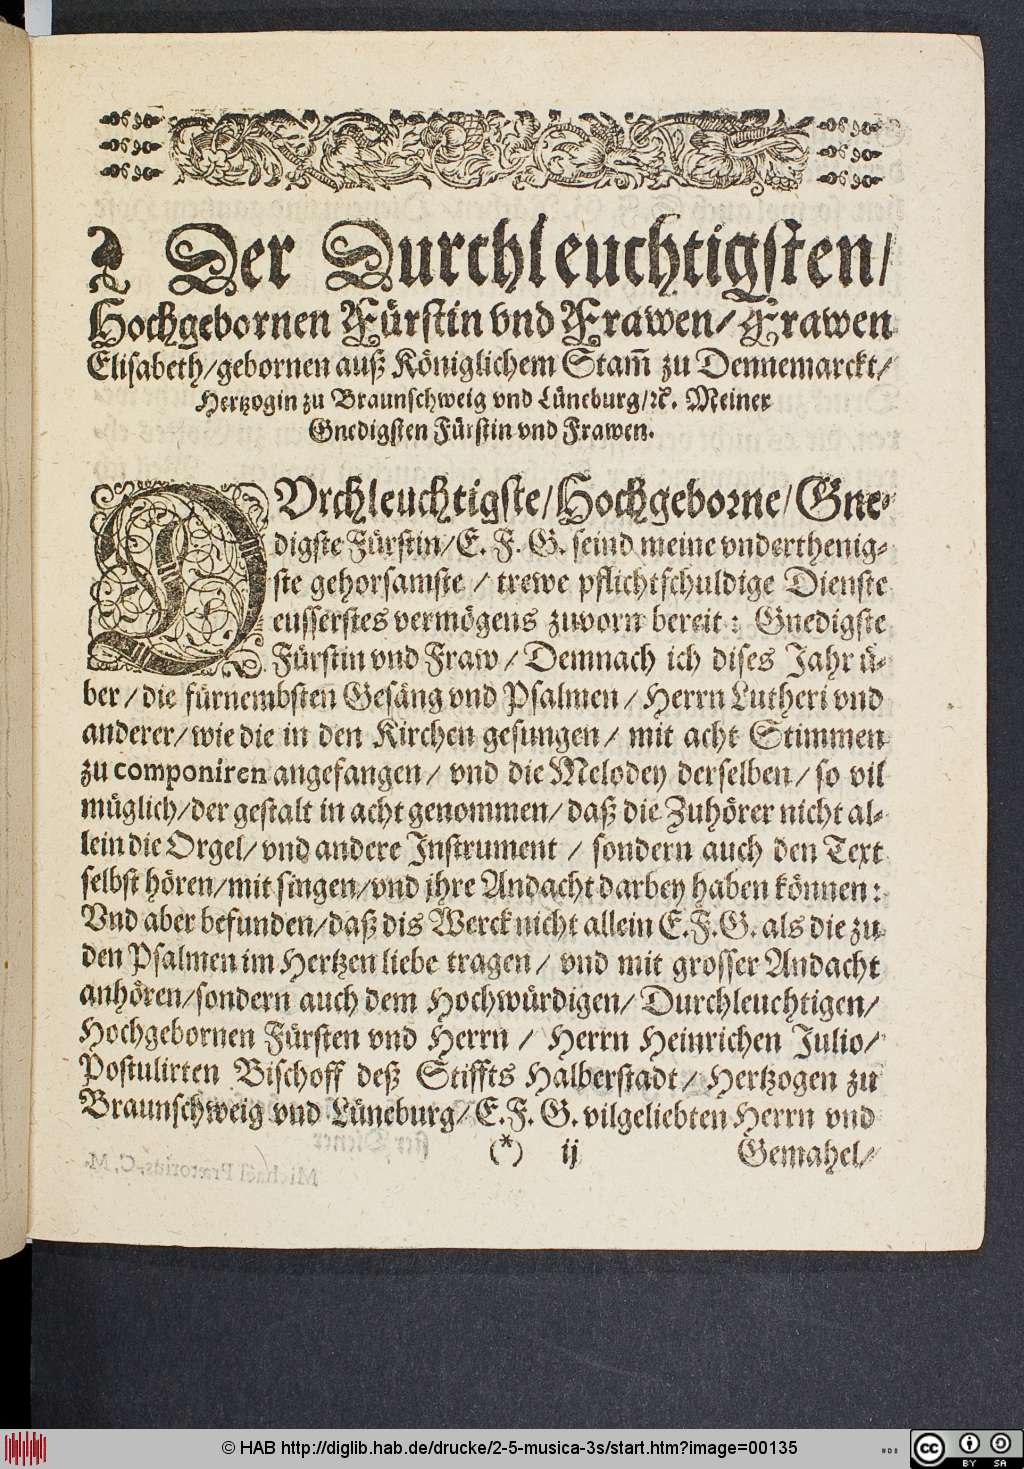 Der Durchleuchtigsten/
Hochgebornen Fürstin vnd Frawen/ Frawen
Elisabeth/gebornen auß Königlichem Stam̃ zu Dennemarckt/
Hertzogin zu Braunschweig vnd Lüneburg/ꝛc. Meiner
Gnedigsten Fürstin vnd Frawen.
DVrchleuchtigste/Hochgeborne/Gne-
digste Fürstin/E. F. G. seind meine vnderthenig-
ste gehorsamste / trewe pflichtschuldige Dienste
eusserstes vermögens zuvorn bereit: Gnedigste
Fürstin vnd Fraw / Demnach ich dises Jahr ü-
ber / die fürnembsten Gesäng vnd Psalmen / Herrn Lutheri vnd
anderer/ wie die in den Kirchen gesungen / mit acht Stimmen
zu componiren angefangen/ vnd die Melodey derselben/ so vil
müglich/der gestalt in acht genommen/ daß die Zuhörer nicht al-
lein die Orgel/ vnd andere Instrument / sondern auch den Text
selbst hören/mit singen/vnd jhre Andacht darbey haben können:
Vnd aber befunden/daß dis Werck nicht allein E.F.G. als die zu
den Psalmen im Hertzen liebe tragen / vnd mit grosser Andacht
anhören/sondern auch dem Hochwürdigen/ Durchleuchtigen/
Hochgebornen Fürsten vnd Herrn / Herrn Heinrichen Julio/
Postulirten Bischoff deß Stiffts Halberstadt/ Hertzogen zu
Braunschweig vnd Lüneburg/ E. F. G. vilgeliebten Herrn vnd
(*) ij Gemahel/
© HAB http://diglib.hab.de/drucke/2-5-musica-3s/start.htm?image=00135
cc BY SA